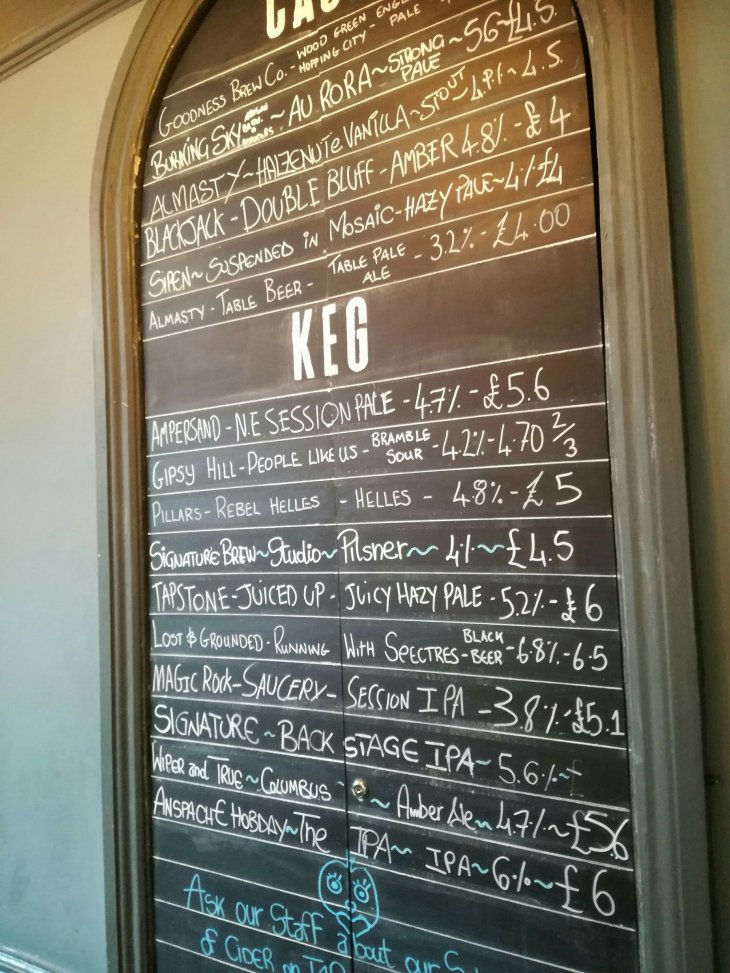 CAS
GOODNESS BREW CO. - WOOD GREEN HOPPING CITY - PALE
BURNING SKY ~ AURORA ~ STRONG PALE ~ 5.6 ~ £4.5.
ALMASTY ~ HALZENUTE VANILLA ~ STOUT ~ 4.9% ~ 4.5.
BLACKJACK - DOUBLE BLUFF - AMBER 4.8% - £4
SIREN ~ SUSPENDED IN MOSAIC - HAZY PALE ~ 4% £4
ALMASTY - TABLE BEER - TABLE PALE ALE - 3.2% - £4.00
KEG
AMPERSAND - N.E SESSION PALE - 4.7% - £5.6
GIPSY HILL - PEOPLE LIKE US - BRAMBLE SOUR - 4.2% - 4.70 2/3
PILLARS - REBEL HELLES - HELLES - 4.8% - £5
SIGNATURE BREW ~ Studio ~ Pilsner ~ 4% ~ £4.5
TAPSTONE - JUICED UP - JUICY HAZY PALE - 5.2% - £6
LOST & GROUNDED - RUNNING WITH SPECTRES - BLACK BEER - 6.8% - 6.5
MAGIC ROCK - SAUCERY - SESSION IPA - 3.8% - £5.1
SIGNATURE ~ BACK STAGE IPA ~ 5.6% ~ £
WIPER and TRUE ~ COLUMBUS ~ Amber Ale ~ 4.7% ~ £5.6
ANSPACH & HOBDAY ~ The IPA ~ IPA ~ 6% ~ £6
ASK our Staff about our
of CIDER on TAP